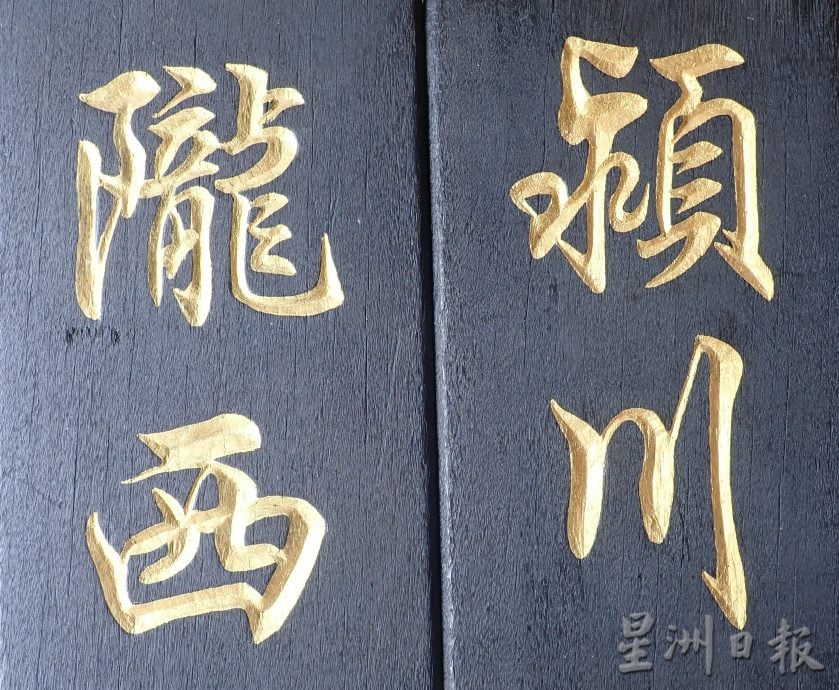 潁川
隴西
星洲日報